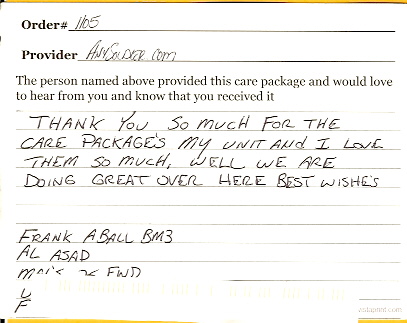 Order# 1105
Provider AnySoldier.com
The person named above provided this care package and would love
to hear from you and know that you received it
THANK YOU SO MUCH FOR THE
CARE PACKAGE'S MY UNIT AND I LOVE
THEM SO MUCH, WELL WE ARE
DOING GREAT OVER HERE BEST WISHE'S
FRANK A BALL BM3
AL ASAD
FWD